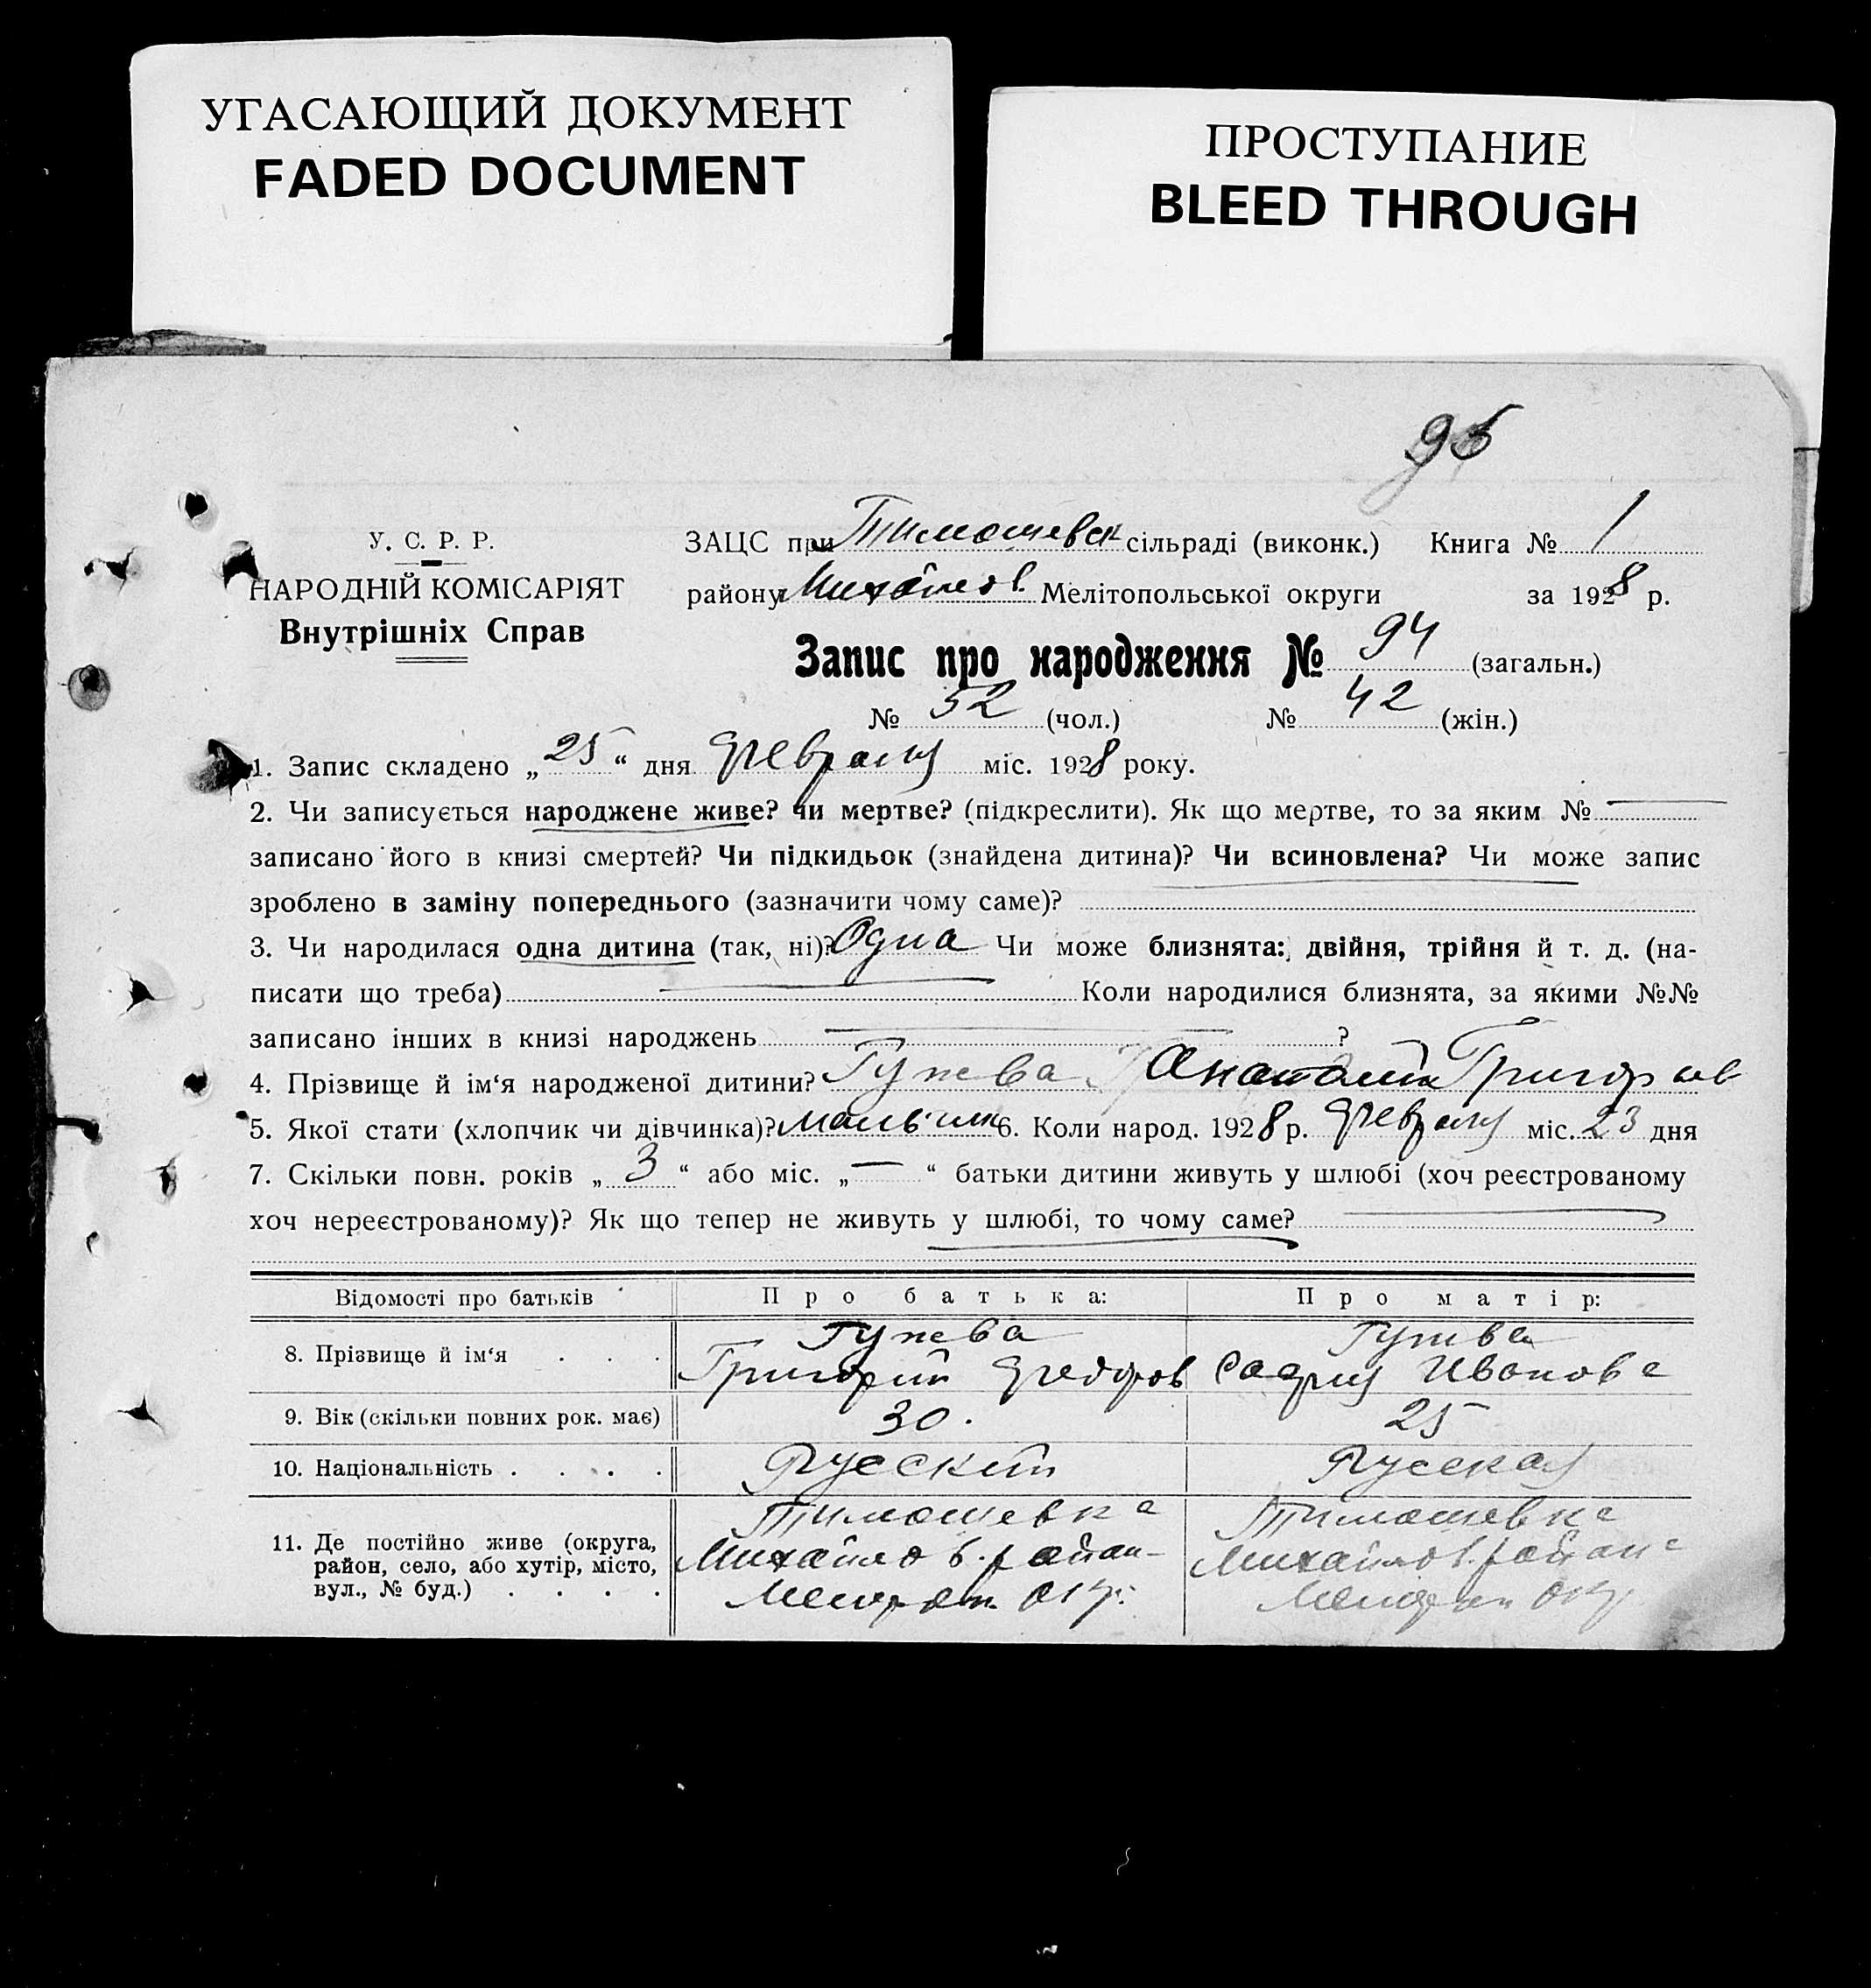 УГАСАЮЩИЙ ДОКУМЕНТ
FADED DOCUMENT
ПРОСТУПАНИЕ
BLEED THROUGH
95
У. С. Р. Р.
НАРОДНІЙ КОМІСАРІЯТ
Внутрішніх Справ
ЗАЦС при Тимошевск сільраді (виконк.) Книга № 1
району Михайлов. Мелітопольської округи за 1928 р.
Запис про народження № 94 (загальн.)
№ 52 (чол.) № 42 (жін.)
1. Запис складено „25“ дня Февраля міс. 1928 року.
2. Чи записується народжене живе? чи мертве? (підкреслити). Як що мертве, то за яким № —
записано його в книзі смертей? Чи підкидьок (знайдена дитина)? Чи всиновлена? Чи може запис
зроблено в заміну попереднього (зазначити чому саме)?
3. Чи народилася одна дитина (так, ні)? Одна Чи може близнята: двійня, трійня й т. д. (на-
писати що треба) Коли народилися близнята, за якими №№
записано інших в книзі народжень — ?
4. Прізвище й ім‘я народженої дитини? Гужва Анатолий Григоров
5. Якої стати (хлопчик чи дівчинка)? мальчик 6. Коли народ. 1928 р. Февраля міс. 23 дня
7. Скільки повн. років „3“ або міс. „—“ батьки дитини живуть у шлюбі (хоч реєстрованому
хоч нереєстрованому)? Як що тепер не живуть у шлюбі, то чому саме? —
Відомості про батьків Про батька: Про матір:
8. Прізвище й ім‘я . . . Гужва Гужва
Григорий Федоров София Иванова
9. Вік (скільки повних рок. має) 30. 25
10. Національність . . . . Русский Русская
11. Де постійно живе (округа, район, село, або хутір, місто, вул., № буд.) . . . .
Тимошевка Тимошевка
Михайлов. район- Михайлов. район
Мелитоп. окр. Мелитоп окр